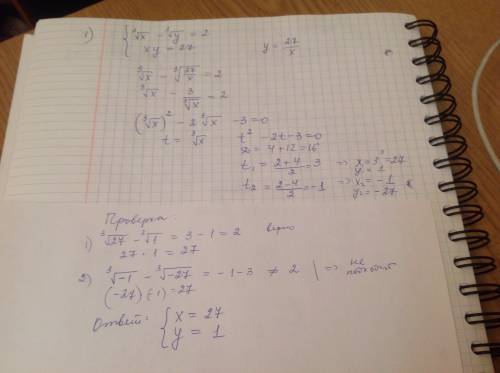 1) { ∛x − ∛y = 2
xy = 27    y = 27/x
∛x − ∛(27/x) = 2
∛x − 3/∛x = 2
(∛x)² − 2∛x − 3 = 0
t = ∛x    t² − 2t − 3 = 0
D = 4 + 12 = 16
t₁ = (2+4)/2 = 3 => x = 3³ = 27
y = 1
t₂ = (2−4)/2 = −1 => x₂ = −1
y₂ = −27
Проверка:
1) ∛27 − ∛1 = 3 − 1 = 2    верно
27 · 1 = 27
2) ∛−1 − ∛−27 = −1 − 3 ≠ 2 | => не подходит
(−27)(−1) = 27
Ответ: { x = 27
y = 1